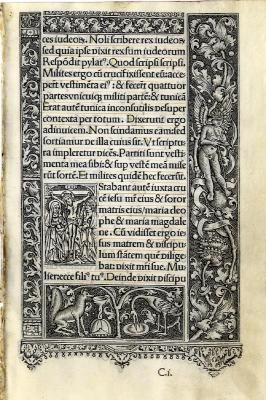 ces iudeoꝝ. Noli scribere rex iudeoꝝ
sed quia ipse dixit rex sum iudeorum
Respōdit pylatꝰ. Quod scripsi scripsi.
Milites ergo cū crucifixissent eū accepe
runt vestimēta eiꝰ: & fecerūt quattuor
partes vnicuiqꝫ militi partē: & tunicā
Erat autē tunica inconsutilis desuper
contexta per totum. Dixerunt ergo
adinuicem. Non scindamus eam sed
sortiamur de illa cuius sit. Ut scriptu
ra impleretur dicēs. Partiti sunt vesti
menta mea sibi: & sup vestē meā mise
rūt sortē. Et milites quidē hec fecerūt.
Stabant autē iuxta cru
cē iesu mr̄ eius & soror
matris eius/maria cleo
phe & maria magdale
ne. Cū vidisset ergo ies
us matrem & discipu
lum stātem quē dilige
bat: dixit mr̄i sue. Mu
lier ecce filiꝰ tuꝰ. Deinde dixit discipu
C.i.